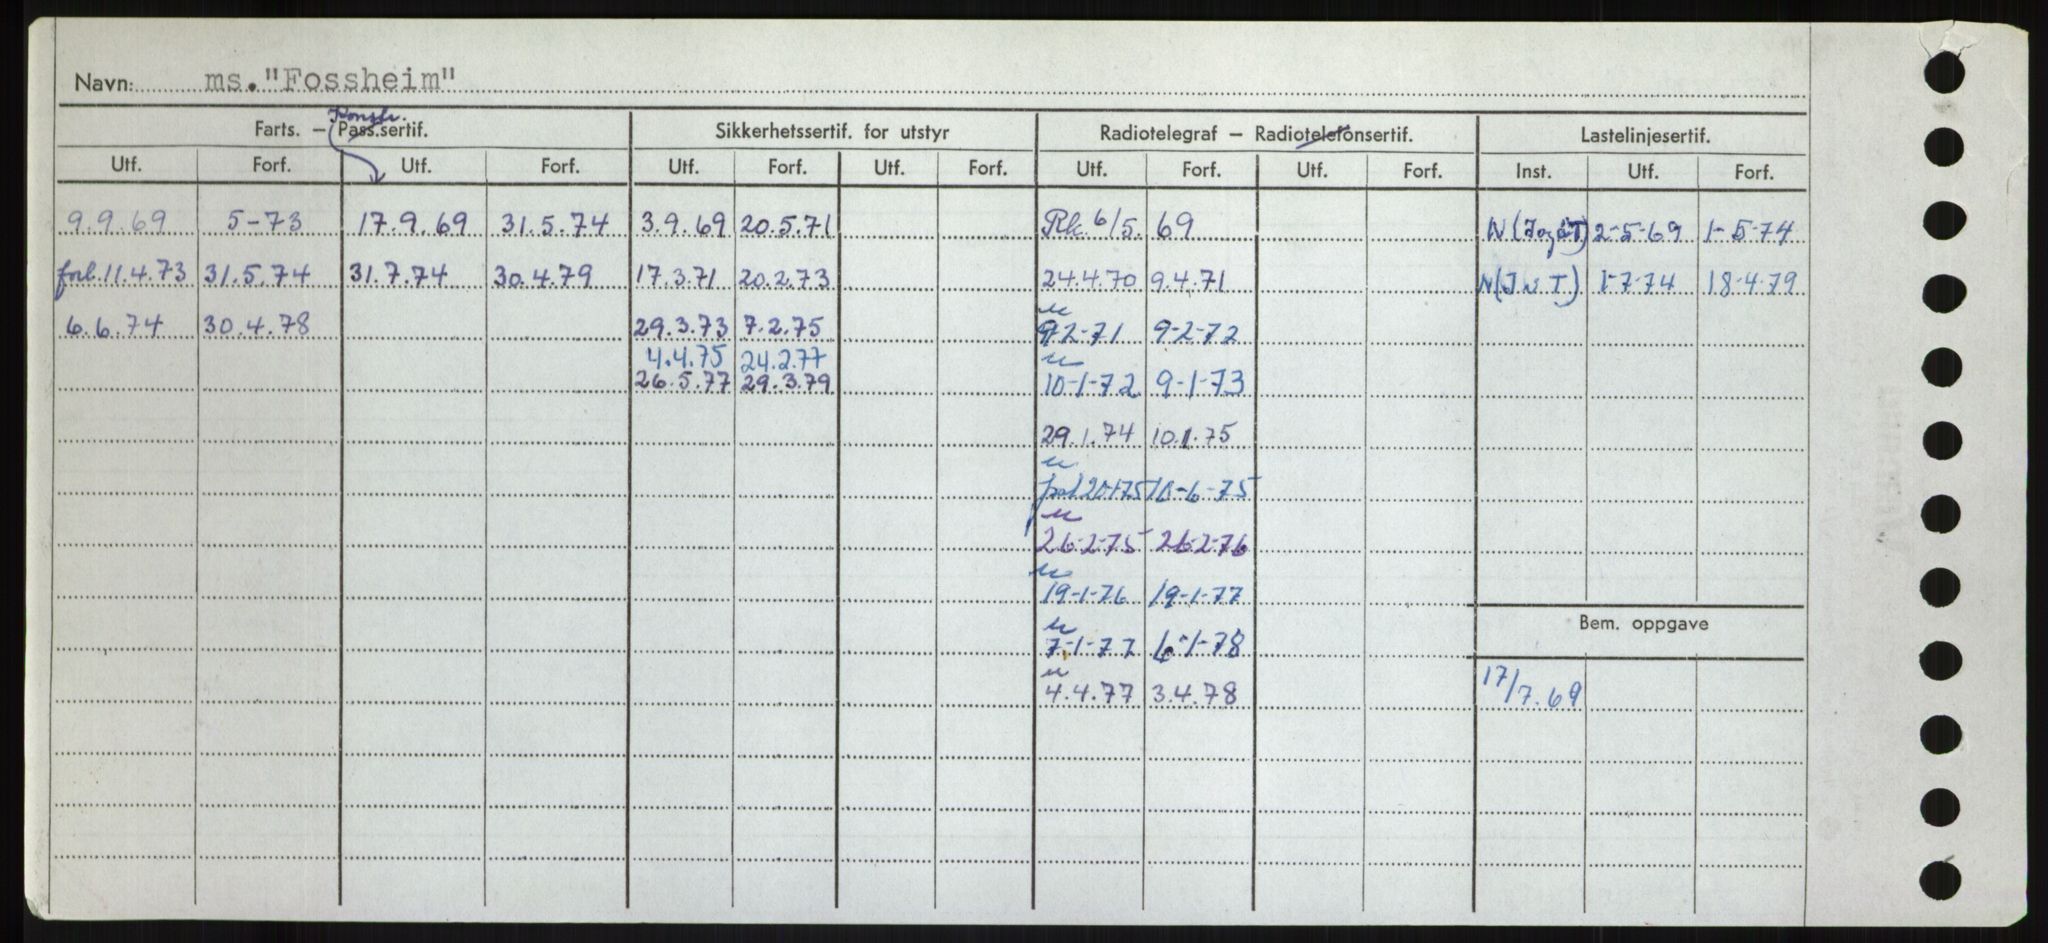 Navn: ms. "Fossheim"
Konstr.
Farts. – Pass.sertif. Sikkerhetssertif. for utstyr Radiotelegraf – Radiotelefonsertif. Lastelinjesertif.
Utf. Forf. Utf. Forf. Utf. Forf. Utf. Forf. Utf. Forf. Utf. Forf. Inst. Utf. Forf.
9.9.69 5-73 17.9.69 31.5.74 3.9.69 20.5.71 Rk. 6/5. 69 N 2-5-69 1-5-74
forl. 11.4.73 31.5.74 31.7.74 30.4.79 17.3.71 20.2.73 24.4.70 9.4.71 N 1-7-74 18-4-79
6.6.74 30.4.78 29.3.73 7.2.75 9-2-71 9-2-72
4.4.75 24.2.77
26.5.77 29.3.79 10-1-72 9-1-73
29.1.74 10.1.75
20-1-75 10-6-75
26-2-75 26-2-76
19-1-76 19-1-77
Bem. oppgave
7-1-77 6-1-78
4.4.77 3.4.78 17/7.69